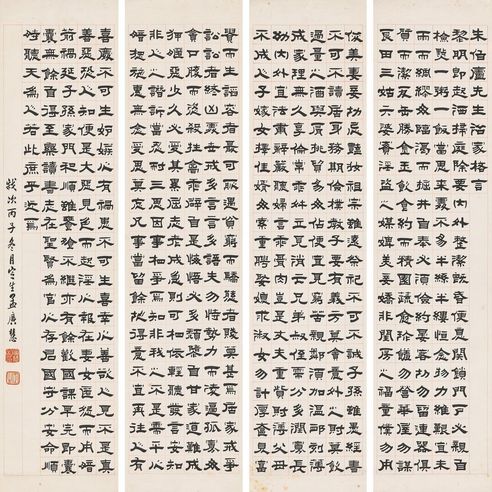 朱伯廬先生治家格言
黎明即起洒掃庭除要內外整潔既昏便息關鎖門戶必親自
檢點一粥一飯當思來處不易半絲半縷恒念物力維艱宜未
雨而綢繆毋臨渴而掘井自奉必須儉約宴客切勿留連器具
質而潔瓦缶勝金玉飲食約而精園蔬愈珍饈勿營華屋勿謀
良田三姑六婆實淫盜之媒婢美妾嬌非閨房之福奴僕勿用
俊美妻妾切忌艷妝祖宗雖遠祭祀不可不誠子孫雖愚經書
不可不讀居身務期儉樸教子要有義方莫貪意外之財莫飲
過量之酒與肩挑貿易毋佔便宜見窮苦親鄰須加溫卹刻薄
成家理無久享倫常乖舛立見消亡兄弟叔侄須分多潤寡長
幼內外宜法肅辭嚴聽婦言乖骨肉豈是丈夫重貲財薄父母
不成人子嫁女擇佳婿毋索重聘娶媳求淑女勿計厚奩見富
貴而生諂容者最可恥遇貧窮而作驕態者賤莫甚居家戒爭
訟訟則終凶處世戒多言言多必失勿恃勢力而凌逼孤寡毋
貪口腹而恣殺牲禽乖僻自是悔誤必多頹惰自甘家道難成
狎昵惡少久必受其累屈志老成急則可相依輕聽發言安知
非人之譖訴當忍耐三思因事相爭焉知非我之不是須平心
暗想施惠無念受恩莫忘凡事當留餘地得意不宜再往人有
喜慶不可生妒嫉心人有禍患不可生喜幸心善欲人見不是真
善惡恐人知便是大惡見色而起淫心報在妻女匿怨而用暗
箭禍延子孫家門和順雖饔飧不繼亦有餘歡國課早完即囊
橐無餘自得至樂讀書志在聖賢為官心存君國守分安命順
時聽天為人若此庶乎近焉
歲次丙子冬月守生孟廣慧